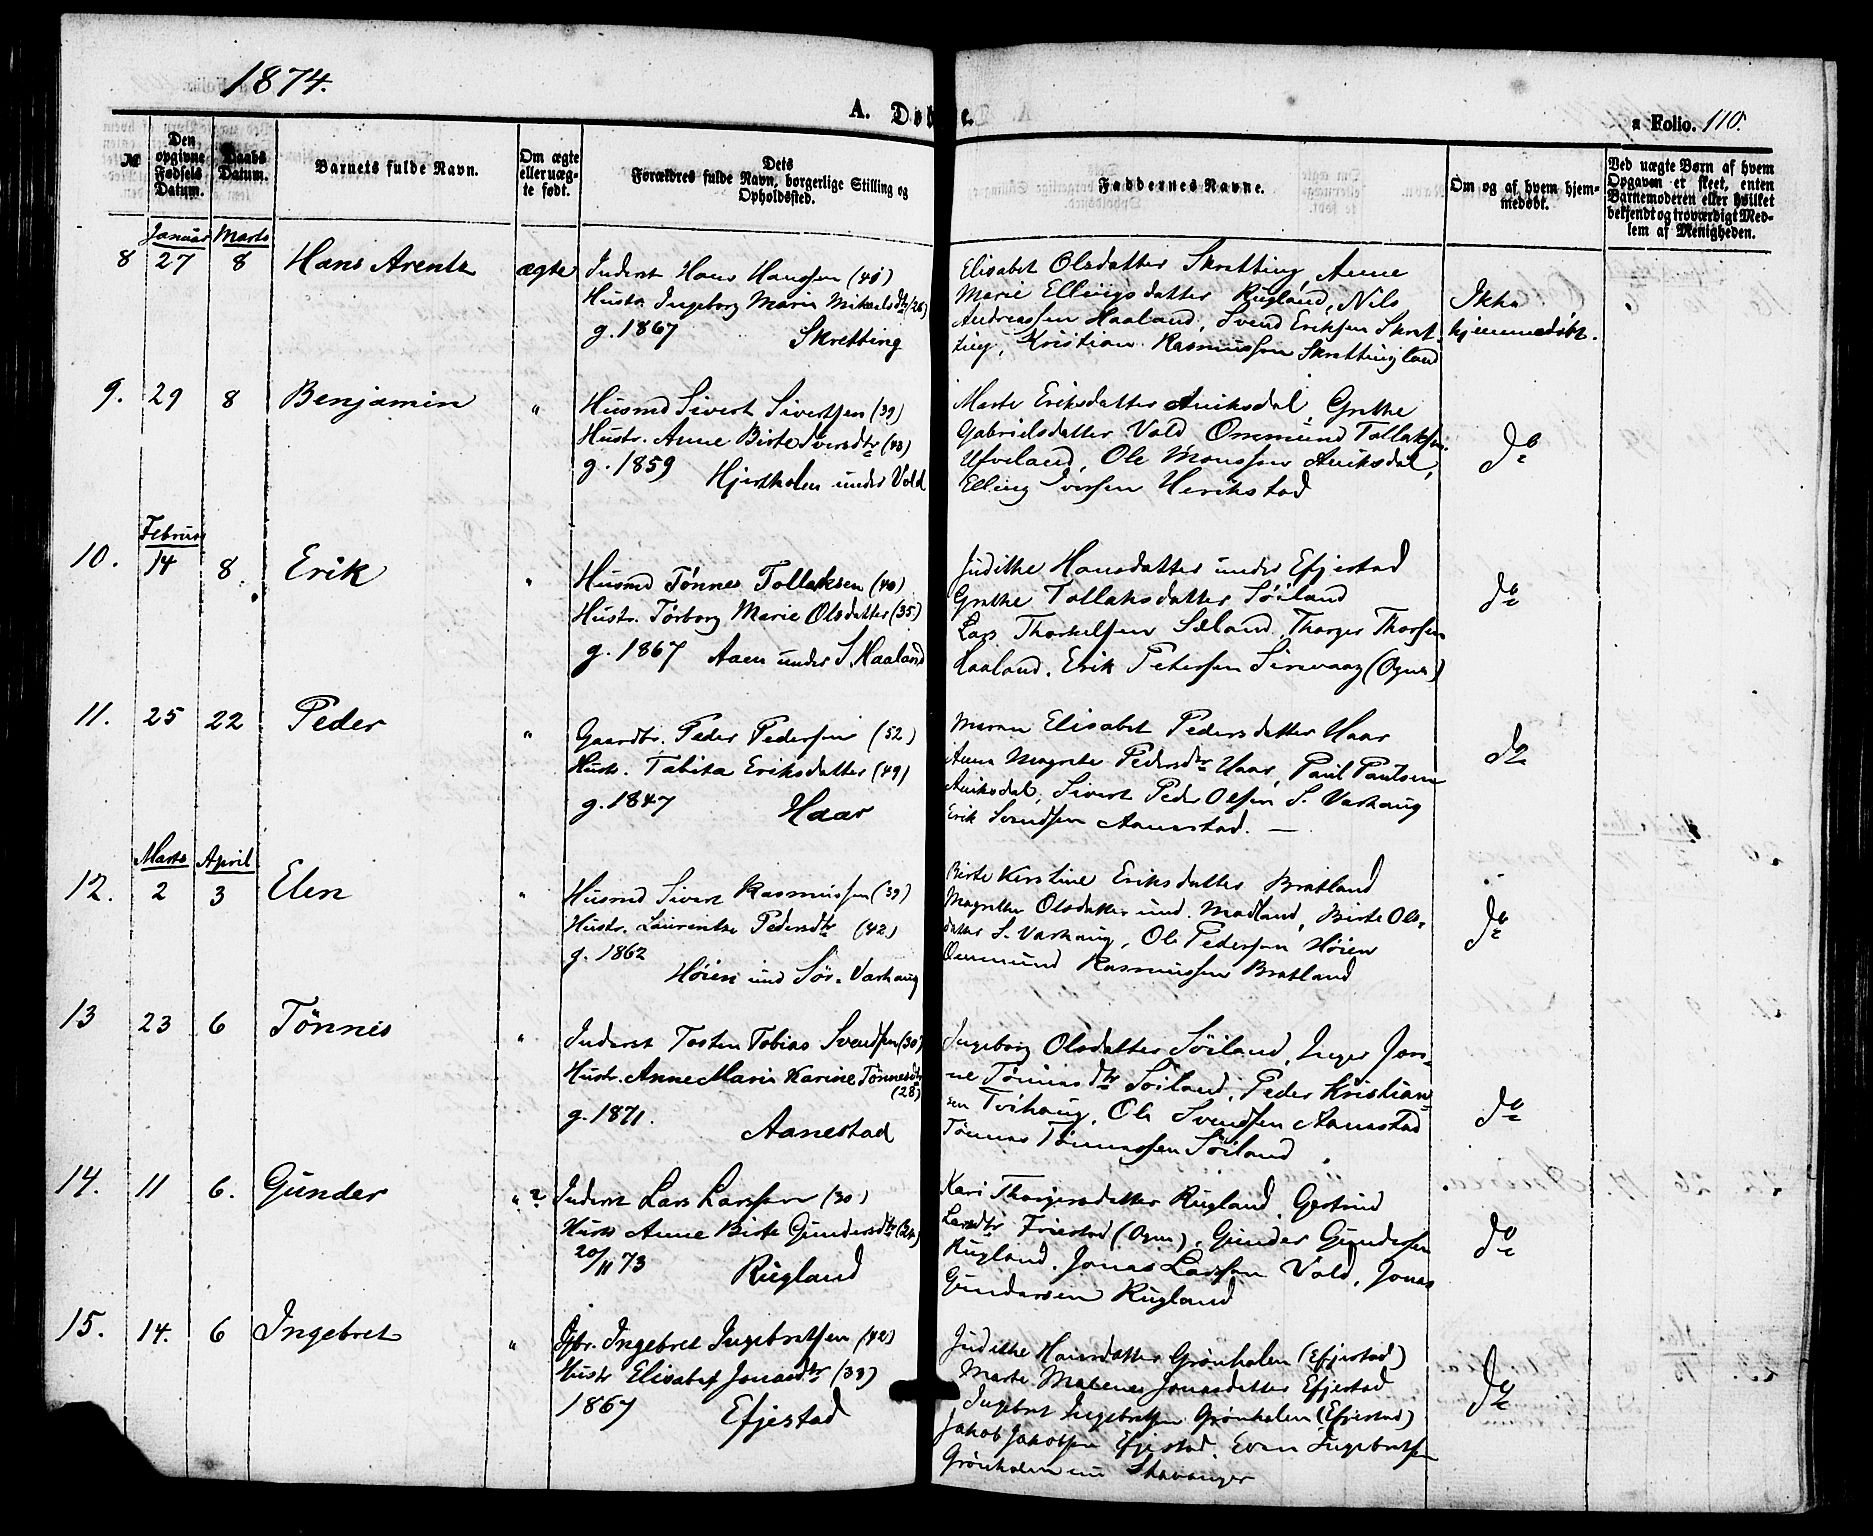 1874.
A. Døbte.
a Folio. 110.
№
Den opgivne Fødsels Datum.
Daabs Datum.
Barnets fulde Navn.
Om ægte eller uægte født.
Dets Forældres fulde Navn, borgerlige Stilling og Opholdssted.
Faddernes Navne.
Om og af hvem hjemmedøbt.
Ved uægte Børn af hvem Opgaven er skeet, enten Barnemoderen eller hvilket bekjendt og troværdigt Medlem af Menigheden.
Januar Marts
8 27 8 Hans Arentz ægte Inderst Hans Hansen (48)
Hustr. Ingeborg Marie Mikaelsdtr (28)
g. 1867 Skretting
Elisabet Olsdatter Skretting, Anne
Marie Ellingsdatter Rugland, Nils
Andreassen Haaland, Svend Eriksen Skret-
ting, Kristian Rasmussen Skrettingland
Ikke
hjemmedøbt.
9. 29 8 Benjamin " Husmd Sivert Sivertsen (39)
Hustr. Anne Birte Iversdtr (43)
g. 1859 Hjertholen under Vold
Marte Eriksdatter Aniksdal, Grethe
Gabrielsdatter Vold, Ommund Tollaksen
Ufveland, Ole Monssen Aniksdal,
Elling Iversen Herikstad
do
Februar
10. 14 8 Erik " Husmd Tønnes Tollaksen (40)
Hustr. Torborg Marie Olsdatter (35)
g. 1867 Aaen under S. Haaland
Judithe Hansdatter under Efjestad
Grethe Tollaksdatter Søiland
Lars Thorkelsen Søland, Thorger Thorsen
Haaland, Erik Petersen Sirevaag (Ogna)
do
11. 25 22 Peder " Gaardbr. Peder Pedersen (52)
Hustr. Tabita Eriksdatter (49)
g. 1847 Haar
Maren Elisabet Pedersdatter Haar
Anna Magrete Pedersdtr Haar, Paul Paulsen
Aniksdal, Sivert Peder Olsen S. Varhaug
Erik Svendsen Aanestad. —
do
Marts April
12. 2 3 Elen " Husmd Sivert Rasmussen (39)
Hustr. Laurentze Pedersdtr (42)
g. 1862
Høien und Sør. Varhaug
Birte Kerstine Eriksdatter Bratland
Magrethe Olsdatter und. Madland, Birte Ols-
datter S. Varhaug, Ole Pedersen Høien
Ommund Rasmussen Bratland
do
13 23 6 Tønnes " Inderst Tosten Tobias Svendsen (30)
Hustr. Anne Marie Karine Tønnesdtr
(28)
g. 1871.
Aanestad
Ingeborg Olsdatter Søiland, Inger Jon-
ne Tønnesdtr Søiland, Peder Kristian-
sen Tvihaug, Ole Svendsen Aanestad
Tønnes Tønnessen Søiland
do
14. 11 6. Gunder " ? Inderst Lars Larssen (30)
Hustr Anne Birte Gundersdtr (24)
20/11 73 Rugland
Kari Thorgersdatter Rugland, Gertrud
Larsdtr Friestad (Ogna), Gunder Gundersen
Rugland, Jonas Larssen Vold, Jonas
Gundersen Rugland
do
15. 14. 6 Ingebret " Gbr. Ingebret Ingebretsen (42)
Hustr Elisabet Jonasdtr (38)
1867 Efjestad
Judithe Hansdatter Grønholen (Efjestad)
Marte Malene Jonasdatter Efjestad
Ingebret Ingebretsen Grønholen (Efjestad)
Jakob Jakobsen Efjestad, Even Ingebretsen
Grønholen nu Stavanger
do